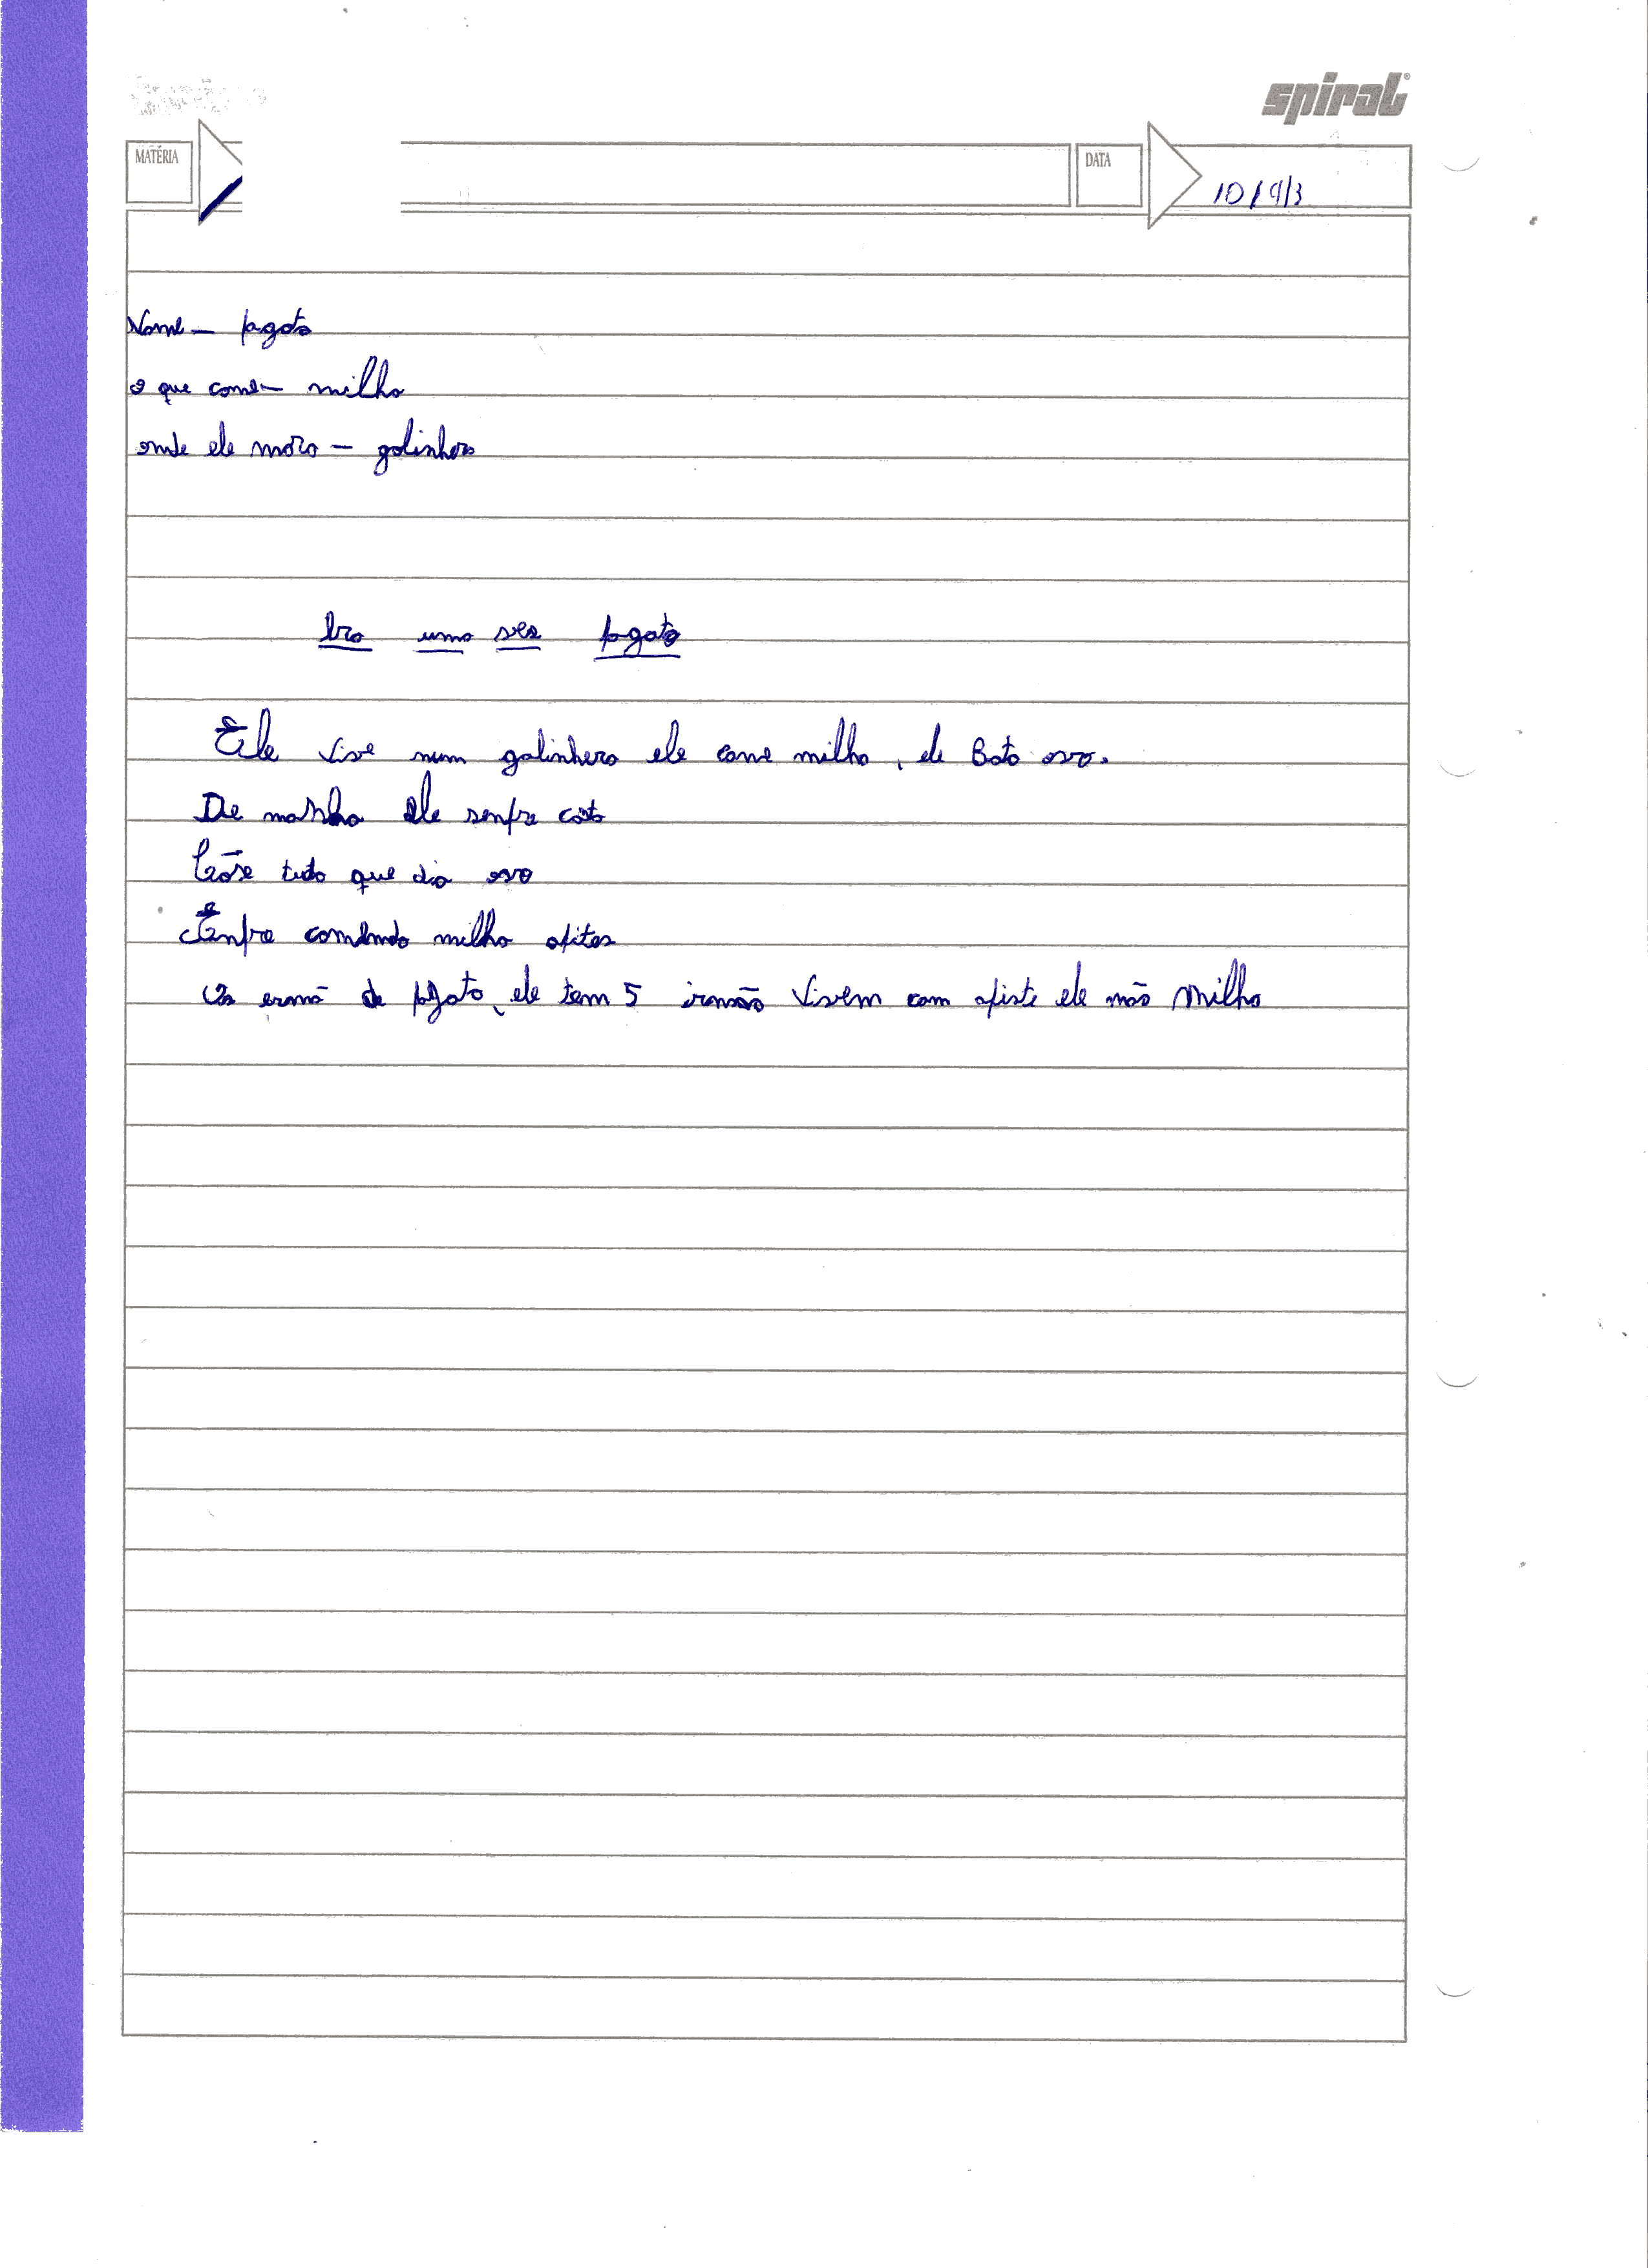 spiral
MATÉRIA
DATA
10/9/3
Nome - pagato
o que come - milho
onde ele mora - galinhero
Era uma ves pagato
Ele vive num galinhero ele come milho, ele Bota ovo.
De manhha ele senpre cata
tudo que dia ovo
Senpre comendo milho
de pagato, ele tem 5 irmão vivem com ele não milho